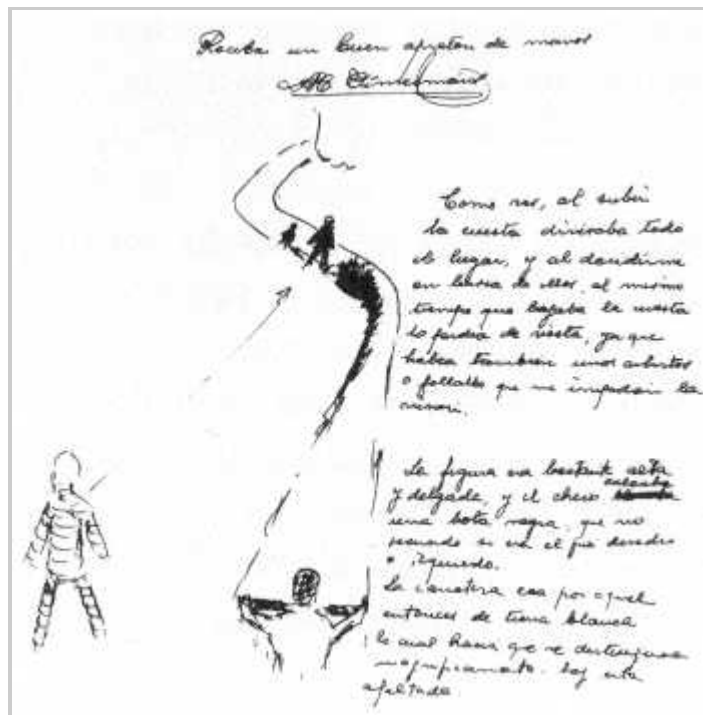 Reciba un buen apreton de manos
Como ves, al subir
la cuesta divisaba todo
el lugar, y al decidirme
en busca de ellos, al mismo
tiempo que bajaba la cuesta
lo perdia de vista, ya que
habia tambien unos arbustos
o follattes que me impedian la
La figura era bastante alta
y delgada, y el chico calzaba
una bota negra, que no
recuerdo si era el pie derecho
o izquierdo.
La carretera era por aquel
entonces de tierra blanca
lo cual hacia que se distinguiera
hoy esta
asfaltada